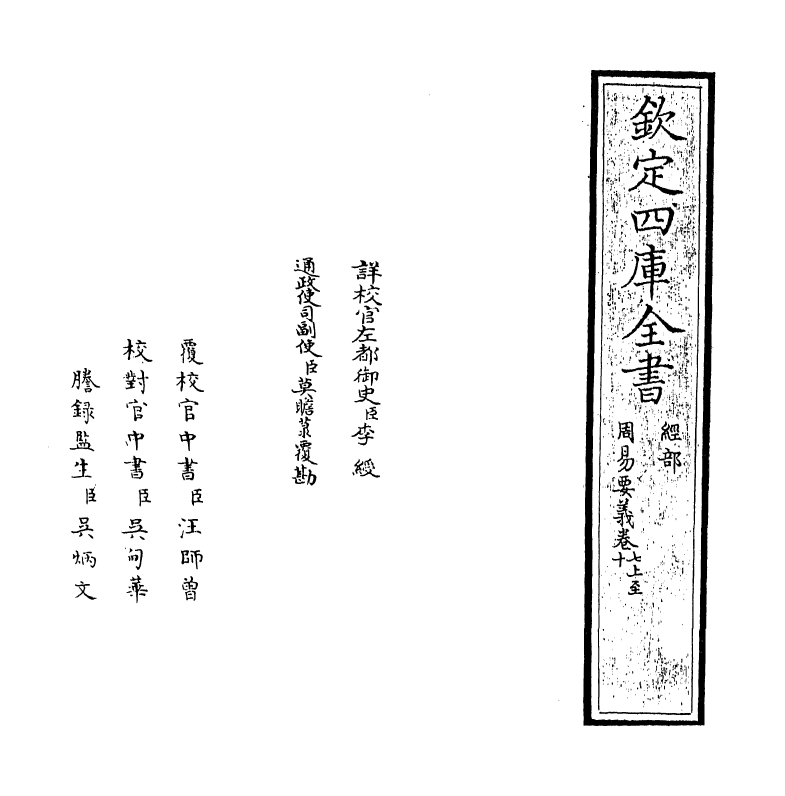 欽定四庫全書
經部
周易要義卷七上至十
詳校官左都御史臣李綬
通政使司副使臣莫瞻菉覆勘
覆校官中書臣汪師曾
校對官中書臣吳甸華
謄錄監生臣吳炳文